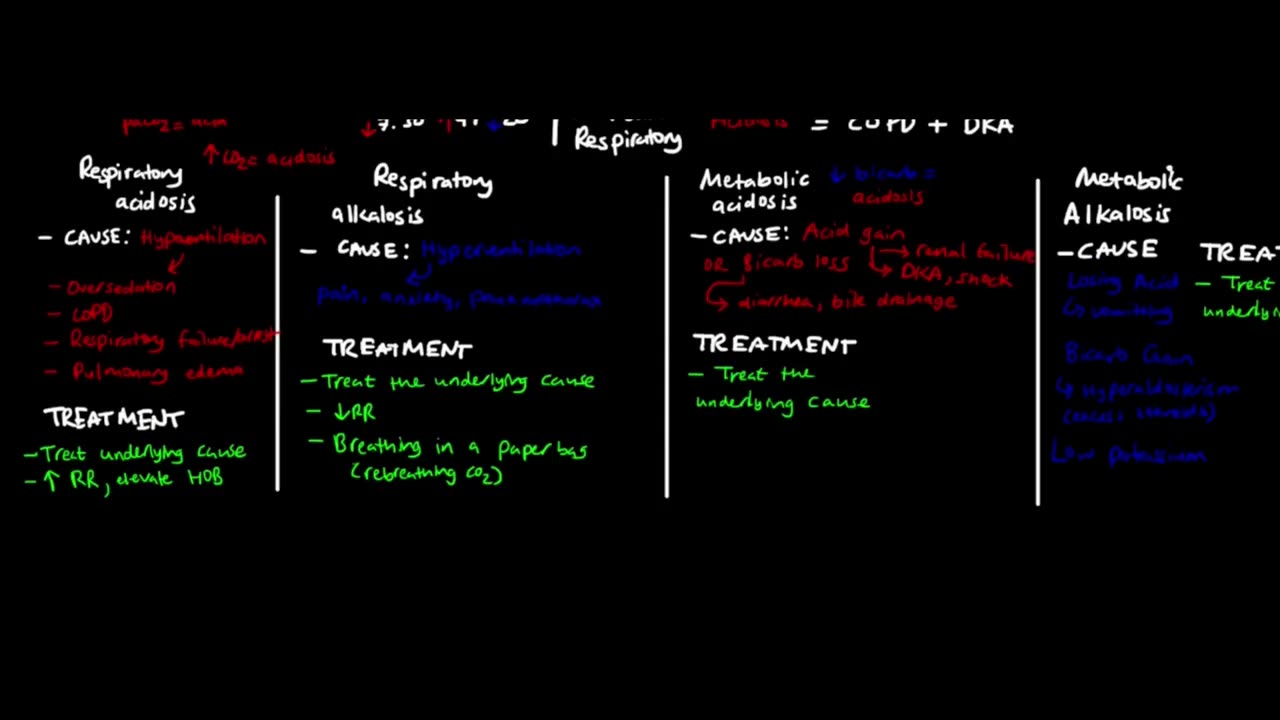 = COPD + DKA
Respiratory
↑ CO2 = acidosis
Respiratory
acidosis
- CAUSE: Hypoventilation
- Oversedation
- COPD
- Respiratory failure/arrest
- Pulmonary edema
TREATMENT
- Treat underlying cause
- ↑ RR, elevate HOB
Respiratory
alkalosis
- CAUSE: Hyperventilation
pain, anxiety,
TREATMENT
- Treat the underlying cause
- ↓RR
- Breathing in a paper bag
(rebreathing CO2)
Metabolic
acidosis
↓ bicarb =
acidosis
- CAUSE: Acid gain
→ renal failure
OR Bicarb loss
↳ DKA, shock
↳ diarrhea, bile drainage
TREATMENT
- Treat the
underlying cause
Metabolic
Alkalosis
- CAUSE
Losing Acid
↳ vomiting
Bicarb Gain
↳ Hyperaldosterism
(excess steroids)
Low potassium
TREAT
- Treat
underlyin